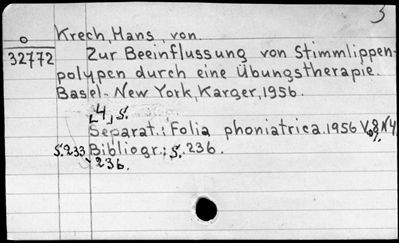 3
Krech, Hans, von.
O
32772
Zur Beeinflussung von Stimmlippen-
polypen durch eine Übungstherapie.
Basel- New York, Karger, 1956.
4 S.
Separat.: Folia phoniatrica. 1956 V. 8 N 4,
S. 233
Bibliogr.: S. 236.
236.